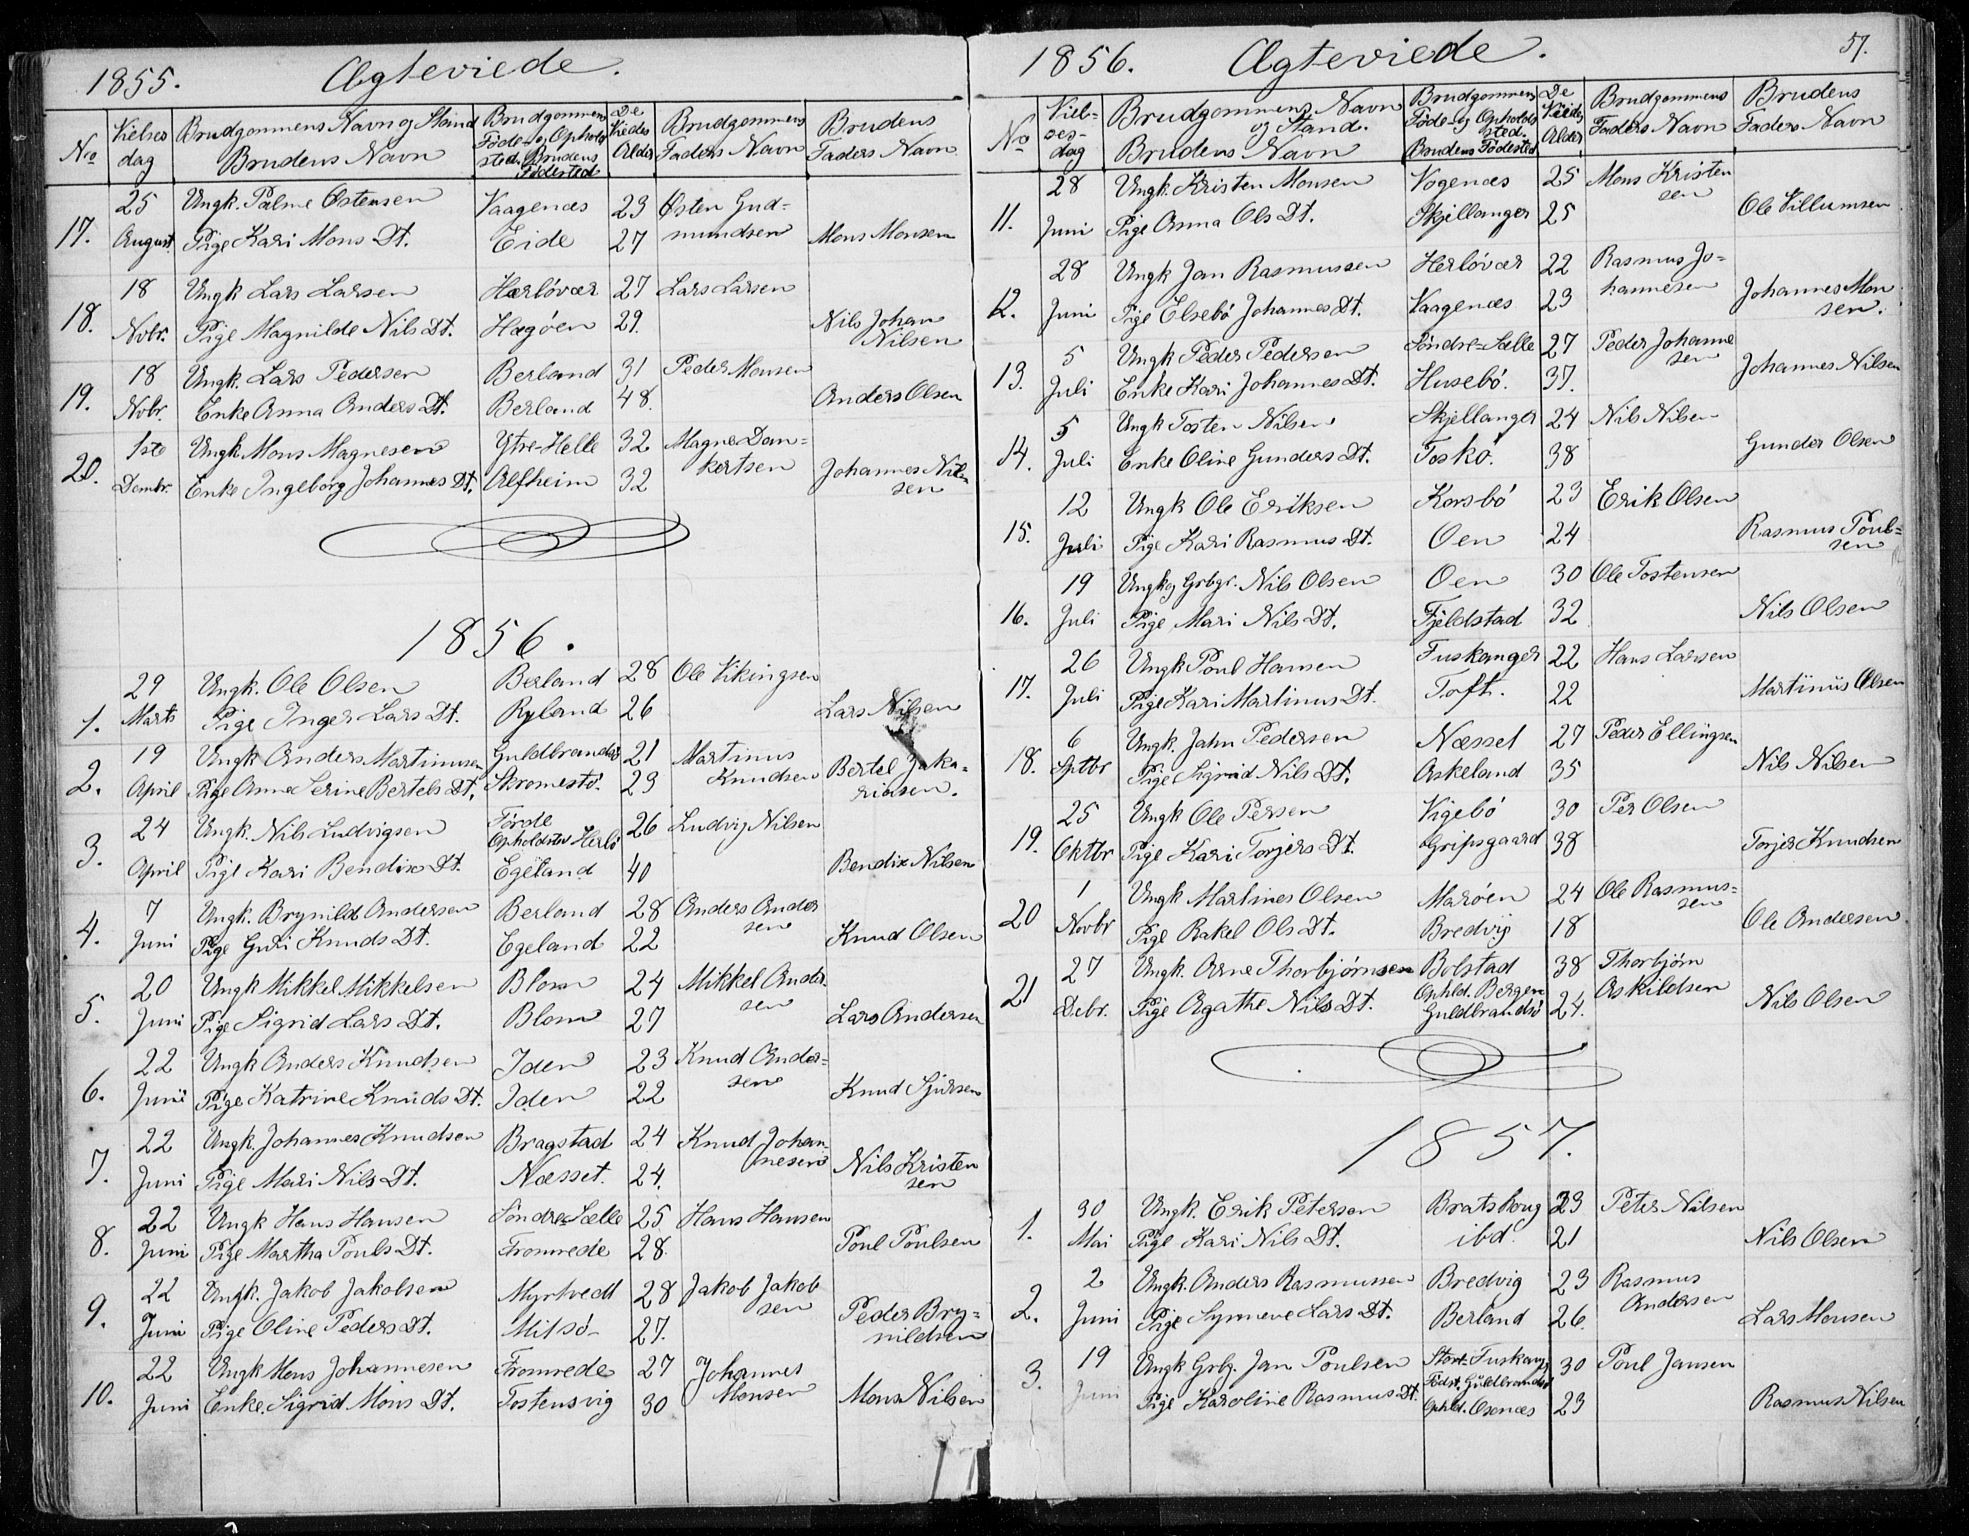 1855. Ægteviede.
No | Vielses dag | Brudgommens Navn og Stand Brudens Navn | Brudgommens Føde- og Opholds sted. Brudens Fødested | De Viedes Alder | Brudgommens Faders Navn | Brudens Faders Navn
25 Ungk. Palme Østensen Vaagenæs 23 Østen Gud-
17. August. Pige Kari Mons Dt. Eide 27 mundsen Mons Monsen
18 Ungk Lars Larsen Herløvær 27 Lars Larsen
18. Novbr. Pige Magnilde Nils Dt. Hægøen 29. Nils Johan
Nilsen
18 Ungk. Lars Pedersen Berland 31 Peder Monsen
19. Novbr. Enke Anna Anders Dt. Berland 48. Anders Olsen
1ste Ungk. Mons Magnesen Ytre-Helle 32 Magne Dan-
20. Dcmbr. Enke Ingeborg Johannes Dt. Alfheim 32 kertsen Johannes Nil-
sen
1856.
29 Ungk. Ole Olsen Berland 28 Ole Vikingsen
1. Marts Pige Inger Lars Dt. Ryland 26 Lars Nilsen
19 Ungk Anders Martinusen Guldbrandsø 21 Martinus
2. April Pige Anne Serine Bertels Dt. Skromestø. 23 Knudsen Bertel Zaka-
riasen.
24 Ungk. Nils Ludvigsen Førde 26 Ludvig Nilsen
Opholdster Herlø
3. April Pige Kari Bendix Dt. Egeland 40 Bendix Nilsen
7 Ungk. Brynild Andersen Berland 28 Anders Ander
sen
4. Juni Pige Guri Knuds Dt. Egeland 22 Knud Olsen
20 Ungk Mikkel Mikkelsen Blom 24 Mikkel Ander-
sen
5. Juni Pige Sigrid Lars Dt. Blom 27 Lars Andersen
22 Ungk Anders Knudsen Iden 23 Knud Ander-
sen
6. Juni Pige Katrine Knuds Dt. Iden 22 Knud Sjursen
22 Ungk. Johannes Knudsen Bragstad 24 Knud Johan
nesen
7. Juni Pige Mari Nils Dt. Næsset. 24. Nils Kristen
sen
22 Ungk Hans Hansen Søndre-Sælle 25 Hans Hansen
8. Juni Pige Martha Pouls Dt. Fromrede 28. Poul Poulsen
22 Ungk. Jakob Jakobsen Myrtvedt 28 Jakob Jakob
sen
9. Juni Pige Oline Peders Dt. Milsø 27. Peder Bry-
nildsen
22 Ungk Mons Johannesen Fromrede 27 Johannes
10. Juni Enke. Sigrid Mons Dt. Tostensvig 30 Monsen Mons Nilsen
1856. Ægteviede. 57.
No | Viel-ses-dag | Brudgommens Navn og Stand. Brudens Navn | Brudgommens Føde- og Opholds sted. Brudens Fødested | De Viedes Alder | Brudgommens Faders Navn | Brudens Faders Navn
28 Ungk. Kristen Monsen Vogenæs 25 Mons Kristen
sen
11. Juni Pige Anna Ols Dt. Skjellanger 25 Ole Villumsen
28 Ungk Jan Rasmussen Herløvær 22 Rasmus Jo-
hannesen
12. Juni Pige Elsebø Johannes Dt. Vaagenæs 23 Johannes Mon
sen.
5 Ungk Peder Pedersen Søndre-Sælle 27 Peder Johanne
sen
13. Juli Enke Kari Johannes Dt. Husebø. 37. Johannes Nilsen
5 Ungk Tosten Nilsen Skjellanger 24 Nils Nilsen
14. Juli Enke Oline Gunders Dt. Foskø. 38 Gunder Olsen
12 Ungk Ole Eriksen Korsbø 23 Erik Olsen
15. Juli Pige Kari Rasmus Dt. Oen 24 Rasmus Poul-
sen
19 Ungk og Grbgr. Nils Olsen Oen 30 Ole Tostensen
16. Juli Pige Mari Nils Dt. Fjeldstad 32 Nils Olsen
26 Ungk Poul Hansen Fuskanger 22 Hans Larsen
17. Juli Pige Kari Martinus Dt. Toft. 22 Martinus Olsen
6 Ungk. Jahn Pedersen Næsset 27 Peder Ellingsen
18. Sptbr Pige Sigrid Nils Dt. Askeland 35 Nils Nilsen
25 Ungk Ole Persen Vigebø 30 Per Olsen
19. Oktbr Pige Kari Torjers Dt. Gripsgaard 38 Torjer Knudsen
1 Ungk Martines Olsen Marøen 24 Ole Rasmus-
sen
20 Novbr Pige Rakel Ols Dt. Bredvig 18 Ole Andersen
27 Ungk. Arne Thorbjørnsen Bolstad 38 Thorbjørn
Ophld. Bergen Askildsen
21 Debr. Pige Agathe Nils Dt. Guldbrandsø 24. Nils Olsen
1857.
30 Ungk. Erik Petersen Bratskoug 23 Peter Nilsen
1. Mai Pige Kari Nils Dt. ibd. 21 Nils Olsen
2 Ungk. Anders Rasmussen Bredvig 23 Rasmus
Andersen
2. Juni Pige Synneve Lars Dt. Berland 26. Lars Monsen
19 Ungk Grbg. Jan Poulsen Stort-Fuskang 30 Poul Jansen
Fødst. Guldbrandsø
3. Juni Pige Karoline Rasmus Dt. Ophld. Osenæs 23 Rasmus Nilsen